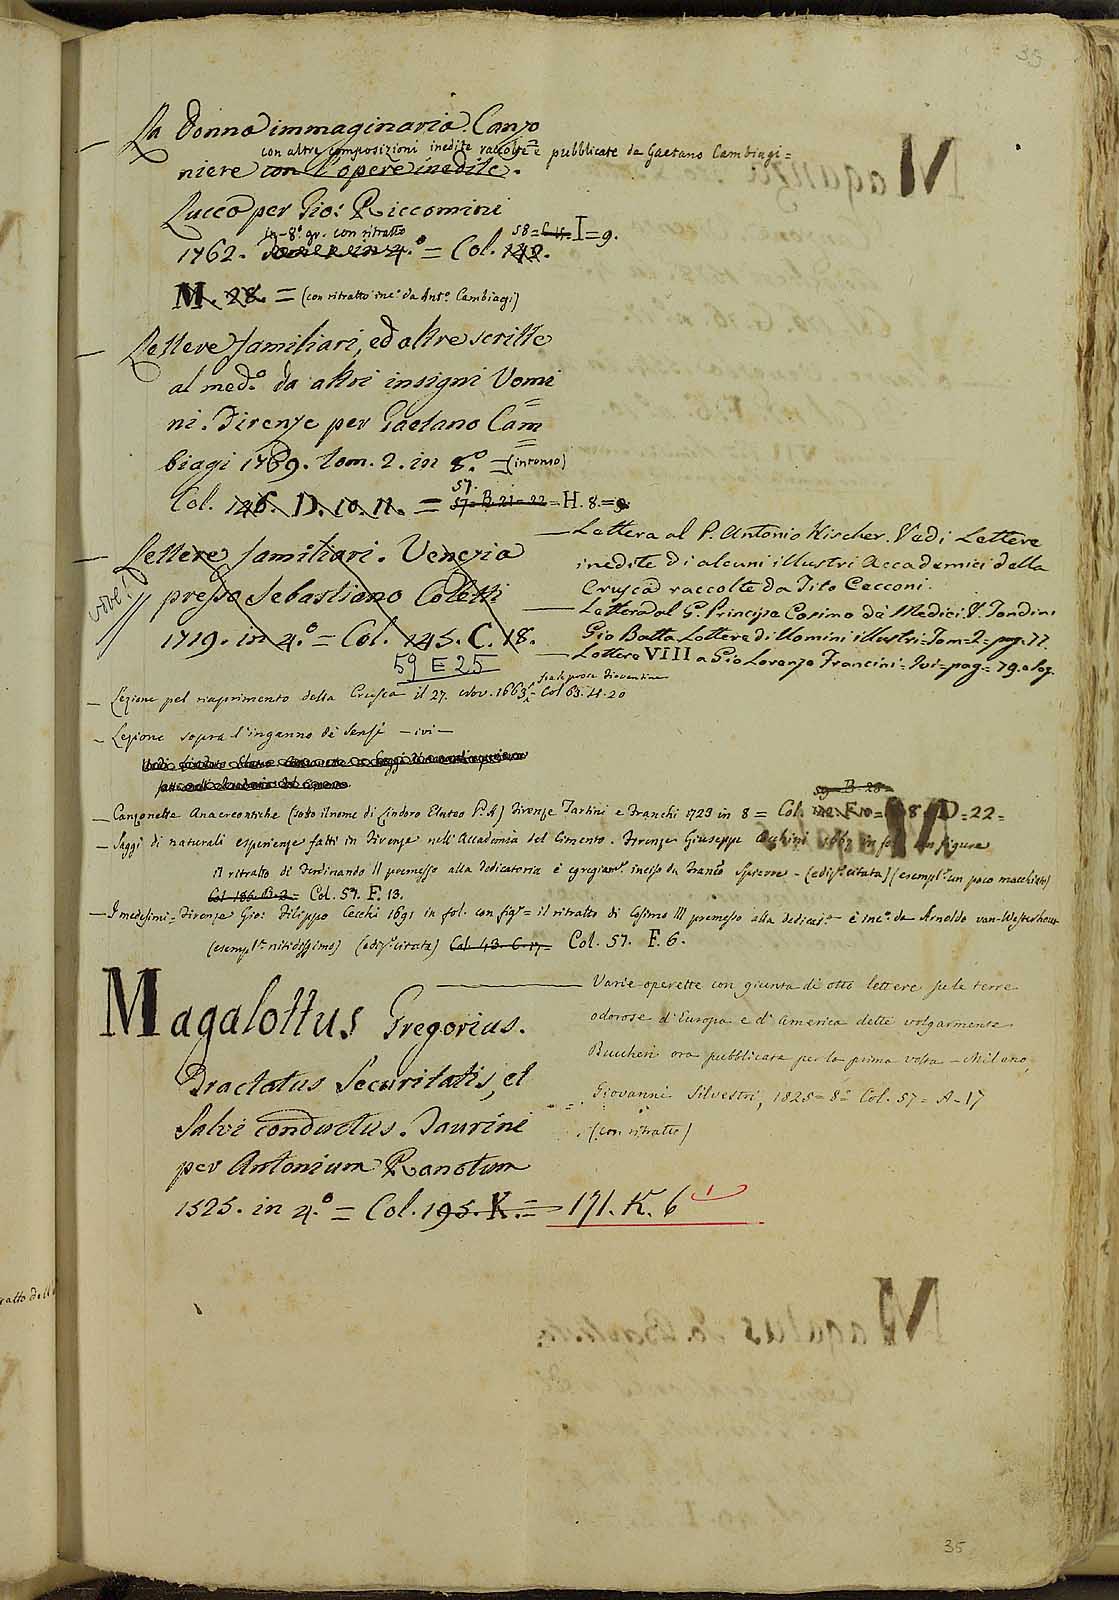 33
La Donna immaginaria. Canzo
con altre composizioni inedite raccolte e pubblicate da Gaetano Cambiagi=
niere con l'opere inedite.
Lucca per Gio: Riccomini
in-8.° gr. con ritratto 58= I=9.
1762. in 4.° = Col.
M. 28. = (con ritratto inc.° da Ant.° Cambiagi)
Lettere familiari, ed altre scritte
al med.° da altri insigni Uomi
ni. Firenze per Gaetano Cam
biagi 1769. tom. 2. in 8.° = (intonso)
57.
Col. 146. D. 10. 11. = 57= B. 21= 22= H. 8.=9
Lettere familiari. Venezia
vive!
presso Sebastiano Coletti
1719. in 4.° = Col. 145. C. 18.
59 E 25
Lettera al P. Antonio Kircher. Vedi Lettere
inedite di alcuni illustri Accademici della
Crusca raccolte da Tito Cecconi.
Lettera al G. Principe Cosimo de Medici. V. Fondini
Gio Batta Lettere di Uomini illustri= Tom= 2= pag. 77
Lettere VIII a Gio Lorenzo Francini= Ivi= pag= 79. a 109.
Lezione pel riaprimento della Crusca il 27. Nov. 1663, fra le prose Fiorentine Col 63. H. 20
Lezione sopra l'inganno de' sensi — ivi —
59 B 28=
Canzonette Anacreontiche (sotto il nome di Lindoro Elateo P. A) Firenze Tartini e Franchi 1723 in 8 = Col. D= 22=
Saggi di naturali esperienze fatti in Firenze nell'Accademia del Cimento. Firenze Giuseppe Cocchini in figure
il ritratto di Ferdinando II premesso alla dedicatoria è egregiam.e inciso da Franc.° Spierre - (ediz.e citata) (esempl.e un poco macchiato)
Col. 186. B. 2= Col. 57. F. 13.
I medesimi= Firenze Gio: Filippo Cecchi 1691 in fol. con fig.e = il ritratto di Cosimo III premesso alla dedicat.a è inc.° da Arnoldo van-Westerhout
(esempl.e nitidissimo) (ediz.e citata) Col. 43. C. 17= Col. 57. F. 6.
Varie operette con giunta di otto lettere su le terre
odorose d'Europa e d'America dette volgarmente
Buccheri ora pubblicate per la prima volta - Milano,
Giovanni Silvestri, 1825= 8° Col. 57= A-17
(con ritratto)
Magalottus Gregorius.
Tractatus Securitatis, et
Salvi conductus. Taurini
per Antonium Ranotum
1525. in 4.° = Col. 195. K. = 171. K. 6
35